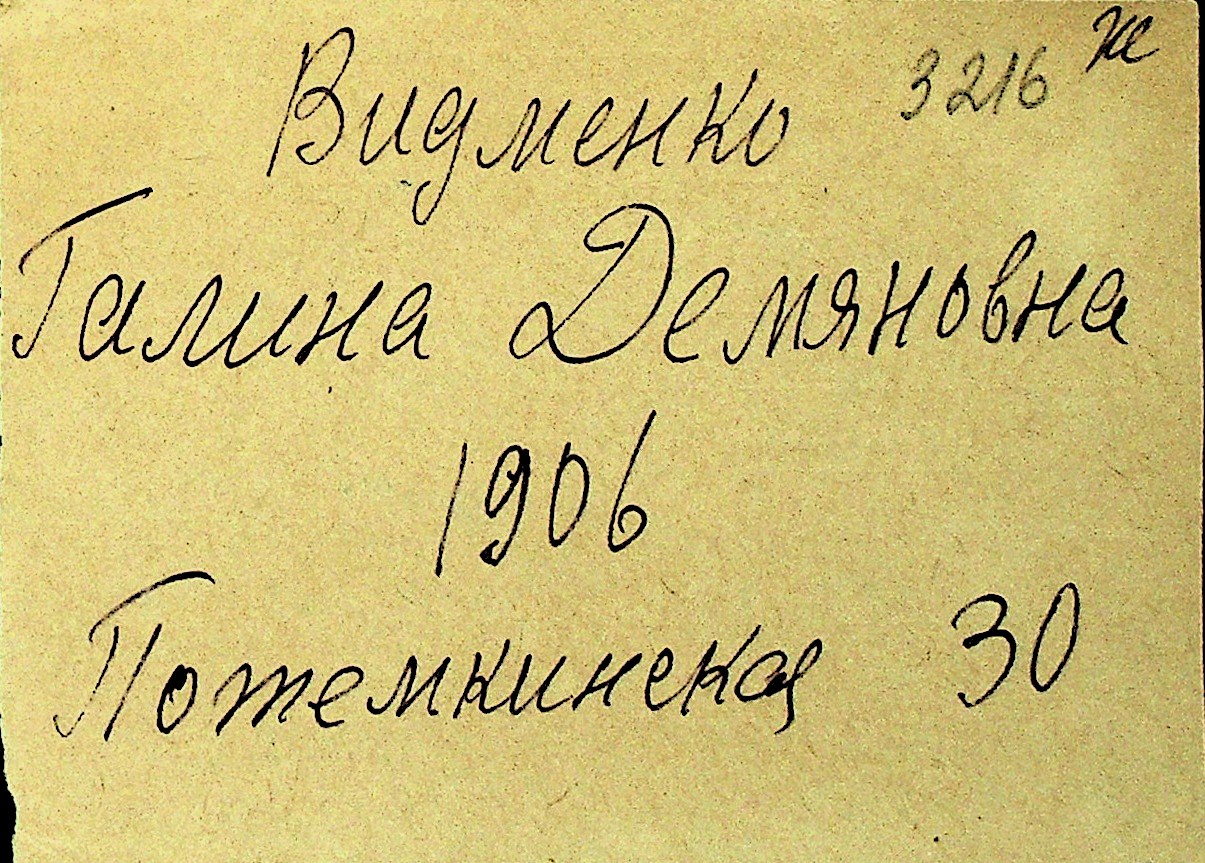 Видменко 3216 ж
Галина Демяновна
1906
Потемкинская 30